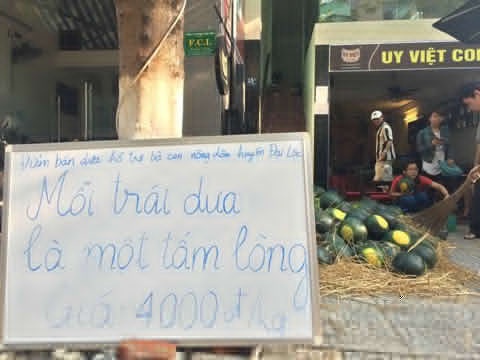 Điểm bán dưa hỗ trợ bà con nông dân huyện Đại Lộc
Mỗi trái dưa
là một tấm lòng
Giá: 4000đ/kg
F.C.I.
UY VIỆT COM